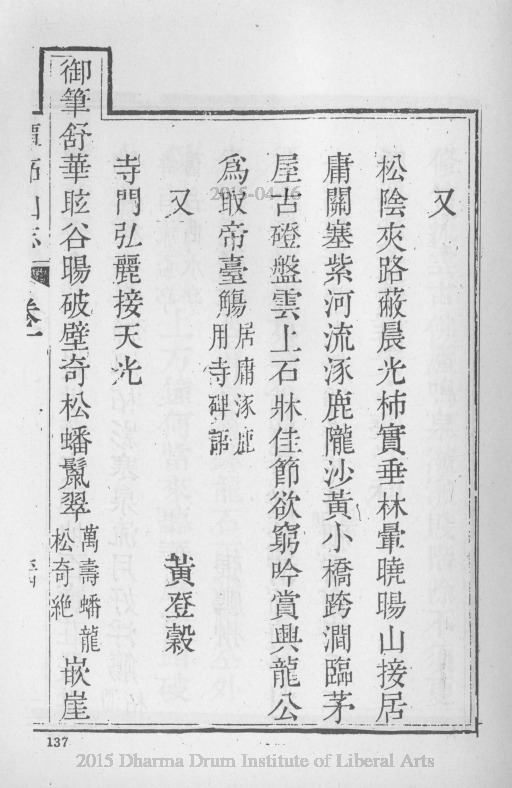 又
松陰夾路蔽晨光柿實垂林暈曉暘山接居
庸關塞紫河流涿鹿隴沙黃小橋跨澗臨茅
屋古磴盤雲上石牀佳節欲窮吟賞興龍公
爲取帝臺觴居庸涿鹿用寺碑語
又 黃登穀
寺門弘麗接天光
御筆舒華眩谷暘破壁奇松蟠鬣翠萬壽蟠龍松奇絶嵌崖
山志 卷一
137
2015-04-16
2015 Dharma Drum Institute of Liberal Arts